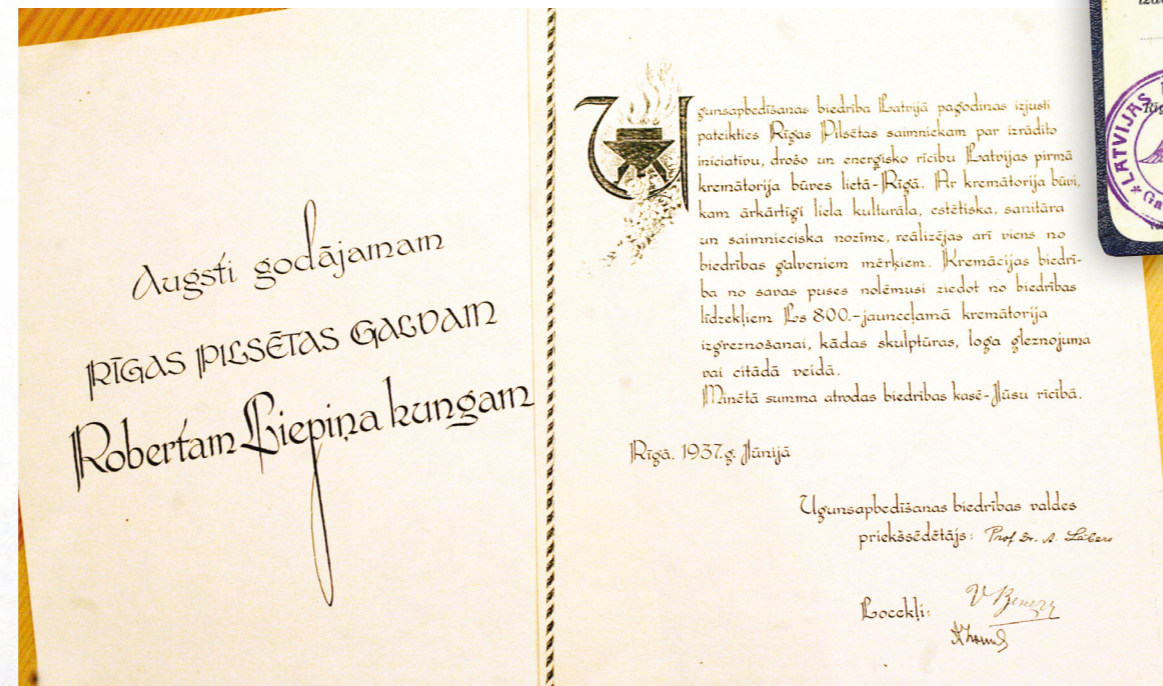 Augsti godājamam
RĪGAS PILSĒTAS GALVAM
Robertam Liepiņa kungam
Ugunsapbedīšanas biedrība Latvijā pagodinas izjusti
pateikties Rīgas Pilsētas saimniekam par izrādīto
iniciatīvu, drošo un energisko rīcību Latvijas pirmā
kremātorija būves lietā-Rīgā. Ar kremātorija būvi,
kam ārkārtīgi liela kulturāla, estētiska, sanitāra
un saimnieciska nozīme, reālizējas arī viens no
biedrības galveniem mērķiem. Kremācijas biedrī-
ba no savas puses nolēmusi ziedot no biedrības
līdzekļiem Ls 800.-jaunceļamā kremātorija
izgreznošanai, kādas skulptūras, loga gleznojuma
vai citādā veidā.
Minētā summa atrodas biedrības kasē-Jūsu rīcībā.
Rīgā. 1937.g. Jūnijā
Ugunsapbedīšanas biedrības valdes
priekšsēdētājs: Prof. Dr. A.
Locekļi:
LATVIJAS